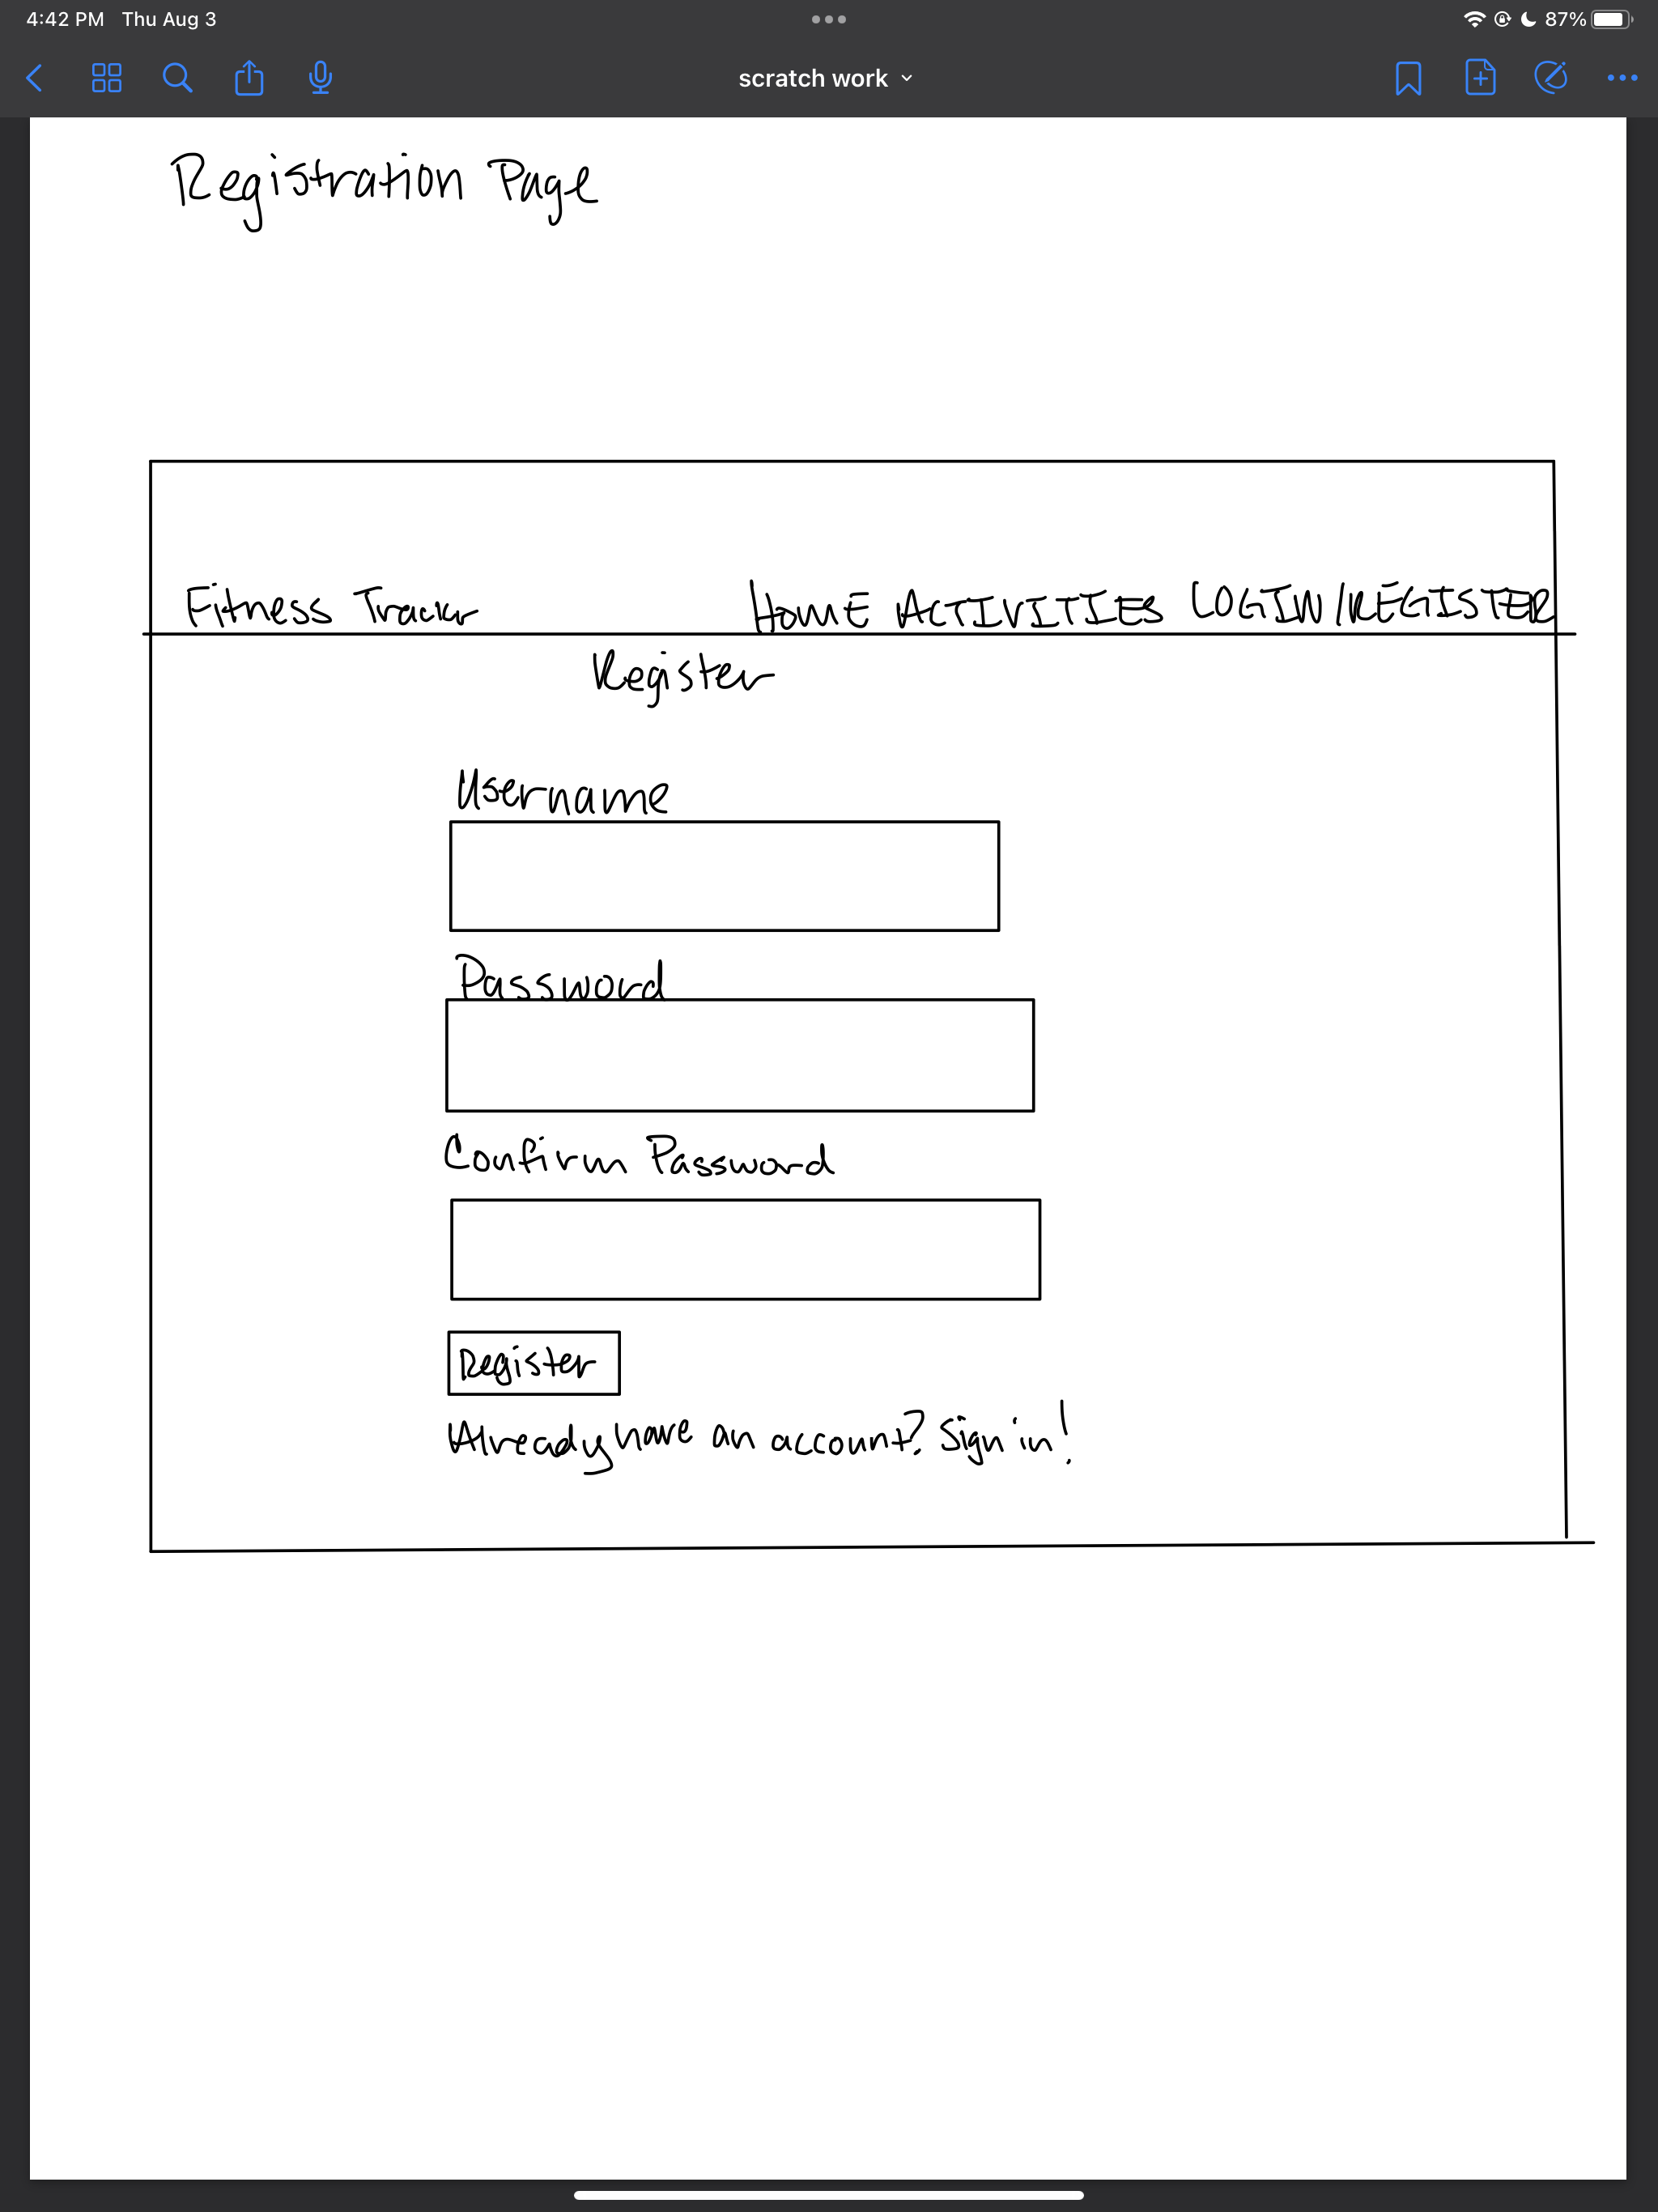 4:42 PM Thu Aug 3
87%
scratch work
Registration Page
Fitness Trac
HOME ACTIVITIES LOGIN/REGISTER
Register
Username
Password
Confirm Password
Register
Already have an account? Sign in!